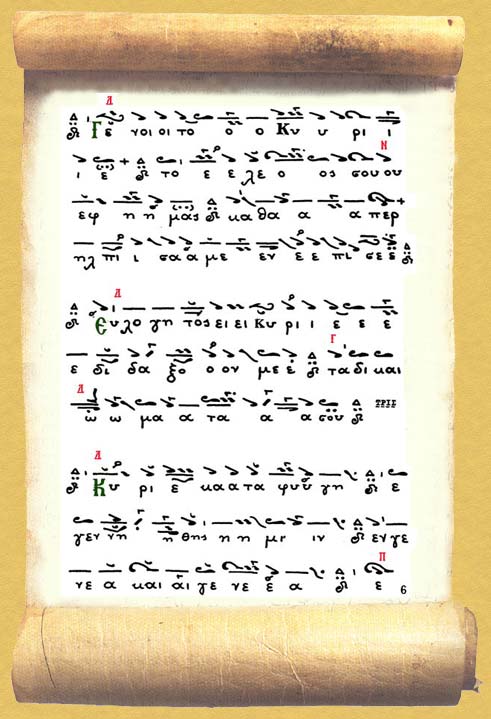 Δ
Γε νοι οι το ο ο Κυ υ ρι ι
Ν
ι ε το ε ε λε ο ος σου ου
εφ η η μας κα θα α α περ
ηλ πι ι σα α με εν ε ε πι σε ε
Δ
Ευ λο γη τος ει ει Κυ ρι ι ε ε ε
Γ
ε δι δα ξο ο ον με ε τα δι και
Δ
ω ω μα α τα α α σου ΤΡΙΣ
Δ
Κυ ρι ε κα α τα φυ υ γη ε
γεν νη η θης η η μι ιν εν γε
Π
νε α και αι γε νε ε α ε
6